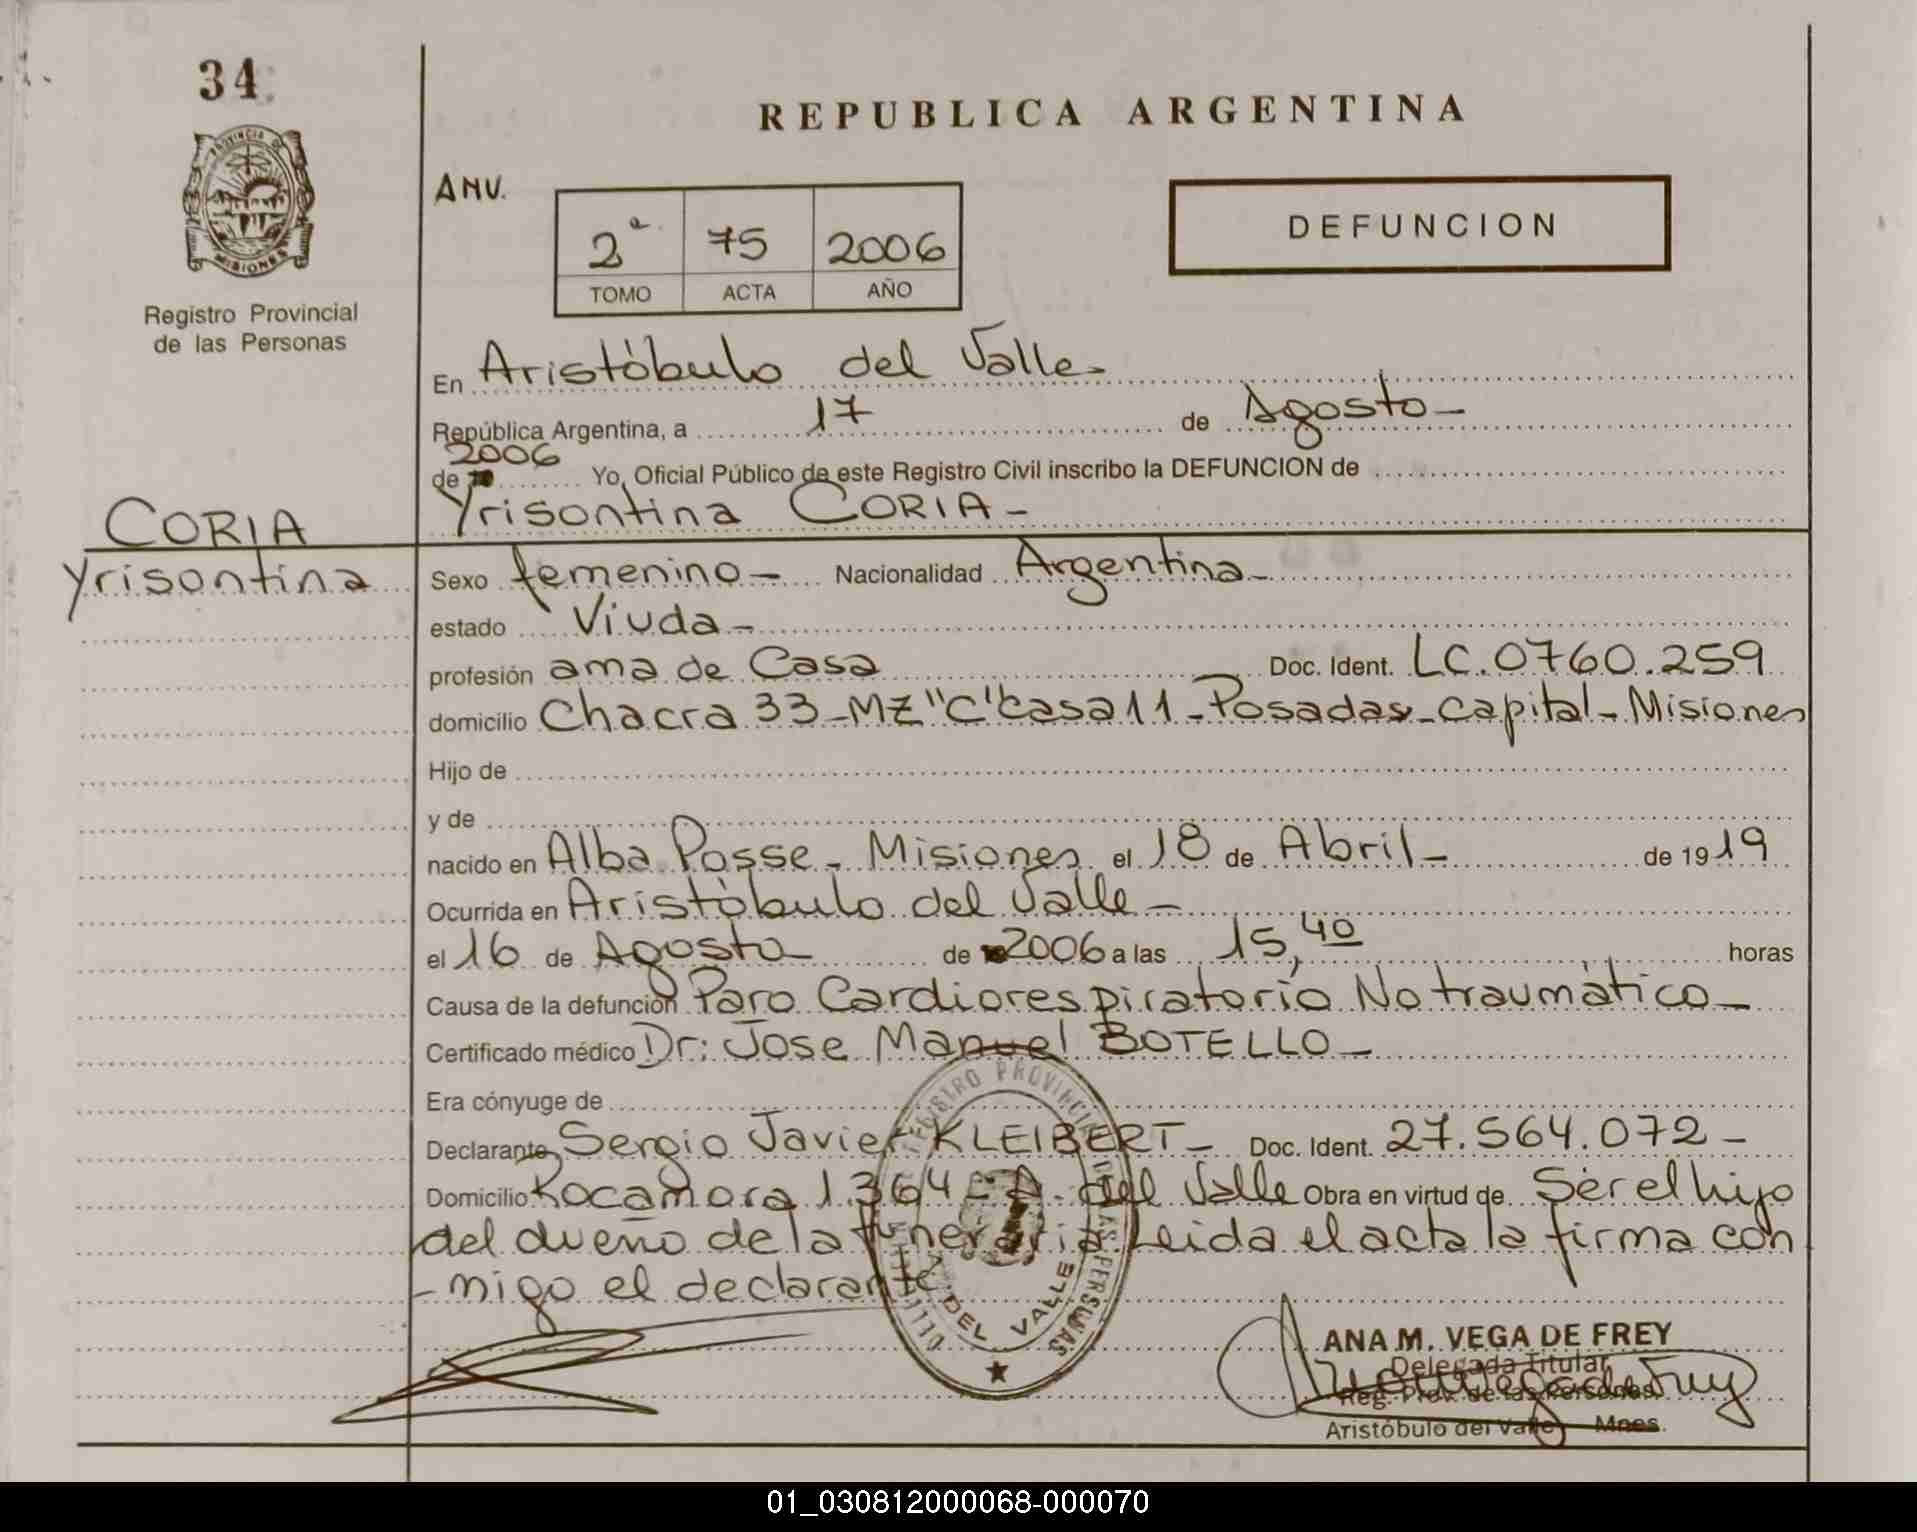 34
REPUBLICA ARGENTINA
PROVINCIA DE
MISIONES
Registro Provincial
de las Personas
ANV.
DEFUNCION
2ª 75 2006
TOMO ACTA AÑO
En Aristóbulo del Valle-
República Argentina, a 17 de Agosto-
2006
de Yo, Oficial Público de este Registro Civil inscribo la DEFUNCION de
Yrisontina CORIA-
CORIA
Yrisontina
Sexo femenino- Nacionalidad Argentina-
estado Viuda-
profesión ama de Casa Doc. Ident. LC.0760.259
domicilio Chacra 33-MZ"C"casa 11-Posadas-Capital-Misiones
Hijo de
y de
nacido en Alba Posse-Misiones el 18 de Abril- de 1919
Ocurrida en Aristóbulo del Valle-
el 16 de Agosto de 2006 a las 15,40 horas
Causa de la defunción Paro Cardiorespiratorio No traumático-
Certificado médico Dr: Jose Manuel BOTELLO-
Era cónyuge de
Declarante Sergio Javier KLEIBERT- Doc. Ident. 27.564.072-
Domicilio Rocamora 1364-A. del Valle Obra en virtud de Ser el hijo
del dueño de la funeraria. Leida el acta la firma con
-migo el declarante
REGISTRO PROVINCIAL DE LAS PERSONAS
DEL VALLE
ANA M. VEGA DE FREY
Delegada Titular
Reg. Prov. de las Personas
Aristóbulo del Valle - Mnes.
01_030812000068-000070